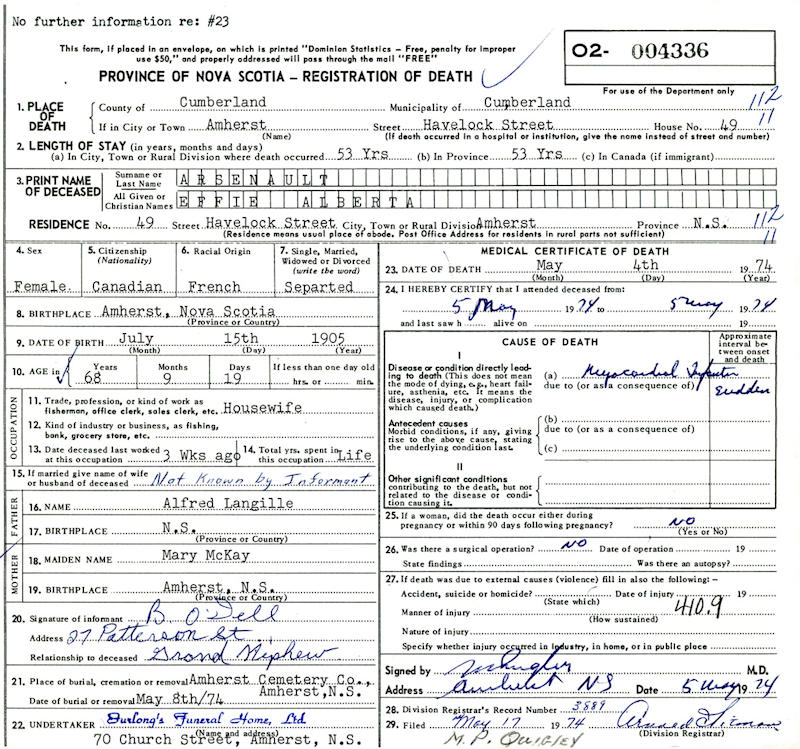 No further information re: #23
This form, if placed in an envelope, on which is printed "Dominion Statistics – Free, penalty for improper
use $50," and properly addressed will pass through the mail "FREE"
02- 004336
PROVINCE OF NOVA SCOTIA – REGISTRATION OF DEATH
For use of the Department only
1. PLACE OF DEATH
County of Cumberland Municipality of Cumberland 112
If in City or Town Amherst Street Havelock Street House No. 49 11
(Name) (If death occurred in a hospital or institution, give the name instead of street and number)
2. LENGTH OF STAY (in years, months and days)
(a) In City, Town or Rural Division where death occurred 53 Yrs (b) In Province 53 Yrs (c) In Canada (if immigrant)
3. PRINT NAME OF DECEASED
Surname or Last Name ARSENAULT
All Given or Christian Names EFFIE ALBERTA
RESIDENCE No. 49 Street Havelock Street City, Town or Rural Division Amherst Province N.S. 112
(Residence means usual place of abode. Post Office Address for residents in rural parts not sufficient) 11
4. Sex
Female
5. Citizenship
(Nationality)
Canadian
6. Racial Origin
French
7. Single, Married,
Widowed or Divorced
(write the word)
Separted
8. BIRTHPLACE Amherst, Nova Scotia
(Province or Country)
9. DATE OF BIRTH July 15th 1905
(Month) (Day) (Year)
10. AGE in
Years Months Days If less than one day old
68 9 19 hrs. or min.
OCCUPATION
11. Trade, profession, or kind of work as
fisherman, office clerk, sales clerk, etc. Housewife
12. Kind of industry or business, as fishing,
bank, grocery store, etc.
13. Date deceased last worked
at this occupation 3 Wks ago
14. Total yrs. spent in
this occupation Life
15. If married give name of wife
or husband of deceased Not Known by Informant
FATHER
16. NAME Alfred Langille
17. BIRTHPLACE N.S.
(Province or Country)
MOTHER
18. MAIDEN NAME Mary McKay
19. BIRTHPLACE Amherst, N.S.
(Province or Country)
20. Signature of informant B. O'Dell
Address 27 Patterson St.
Relationship to deceased Grand Nephew
21. Place of burial, cremation or removal Amherst Cemetery Co.,
Amherst, N.S.
Date of burial or removal May 8th/74
22. UNDERTAKER Furlong's Funeral Home, Ltd
(Name and address)
70 Church Street, Amherst, N.S.
MEDICAL CERTIFICATE OF DEATH
23. DATE OF DEATH May 4th 1974
(Month) (Day) (Year)
24. I HEREBY CERTIFY that I attended deceased from:
5 May 1974 to 5 May 1974
and last saw h alive on 19
CAUSE OF DEATH
Approximate
interval be-
tween onset
and death
I
Disease or condition directly lead-
ing to death (This does not mean
the mode of dying, e.g., heart fail-
ure, asthenia, etc. It means the
disease, injury, or complication
which caused death.)
(a) Myocardial Sudden
due to (or as a consequence of)
Antecedent causes
Morbid conditions, if any, giving
rise to the above cause, stating
the underlying condition last.
(b)
due to (or as a consequence of)
(c)
II
Other significant conditions
contributing to the death, but not
related to the disease or condi-
tion causing it.
25. If a woman, did the death occur either during
pregnancy or within 90 days following pregnancy? NO
(Yes or No)
26. Was there a surgical operation? NO Date of operation 19
State findings Was there an autopsy?
27. If death was due to external causes (violence) fill in also the following:–
Accident, suicide or homicide? Date of injury 19
(State which)
Manner of injury 410.9
(How sustained)
Nature of injury
Specify whether injury occurred in industry, in home, or in public place
Signed by M.D.
Address Amherst NS Date 5 May 1974
28. Division Registrar's Record Number 3889
29. Filed May 17 1974
(Division Registrar)
M.P. QUIGLEY